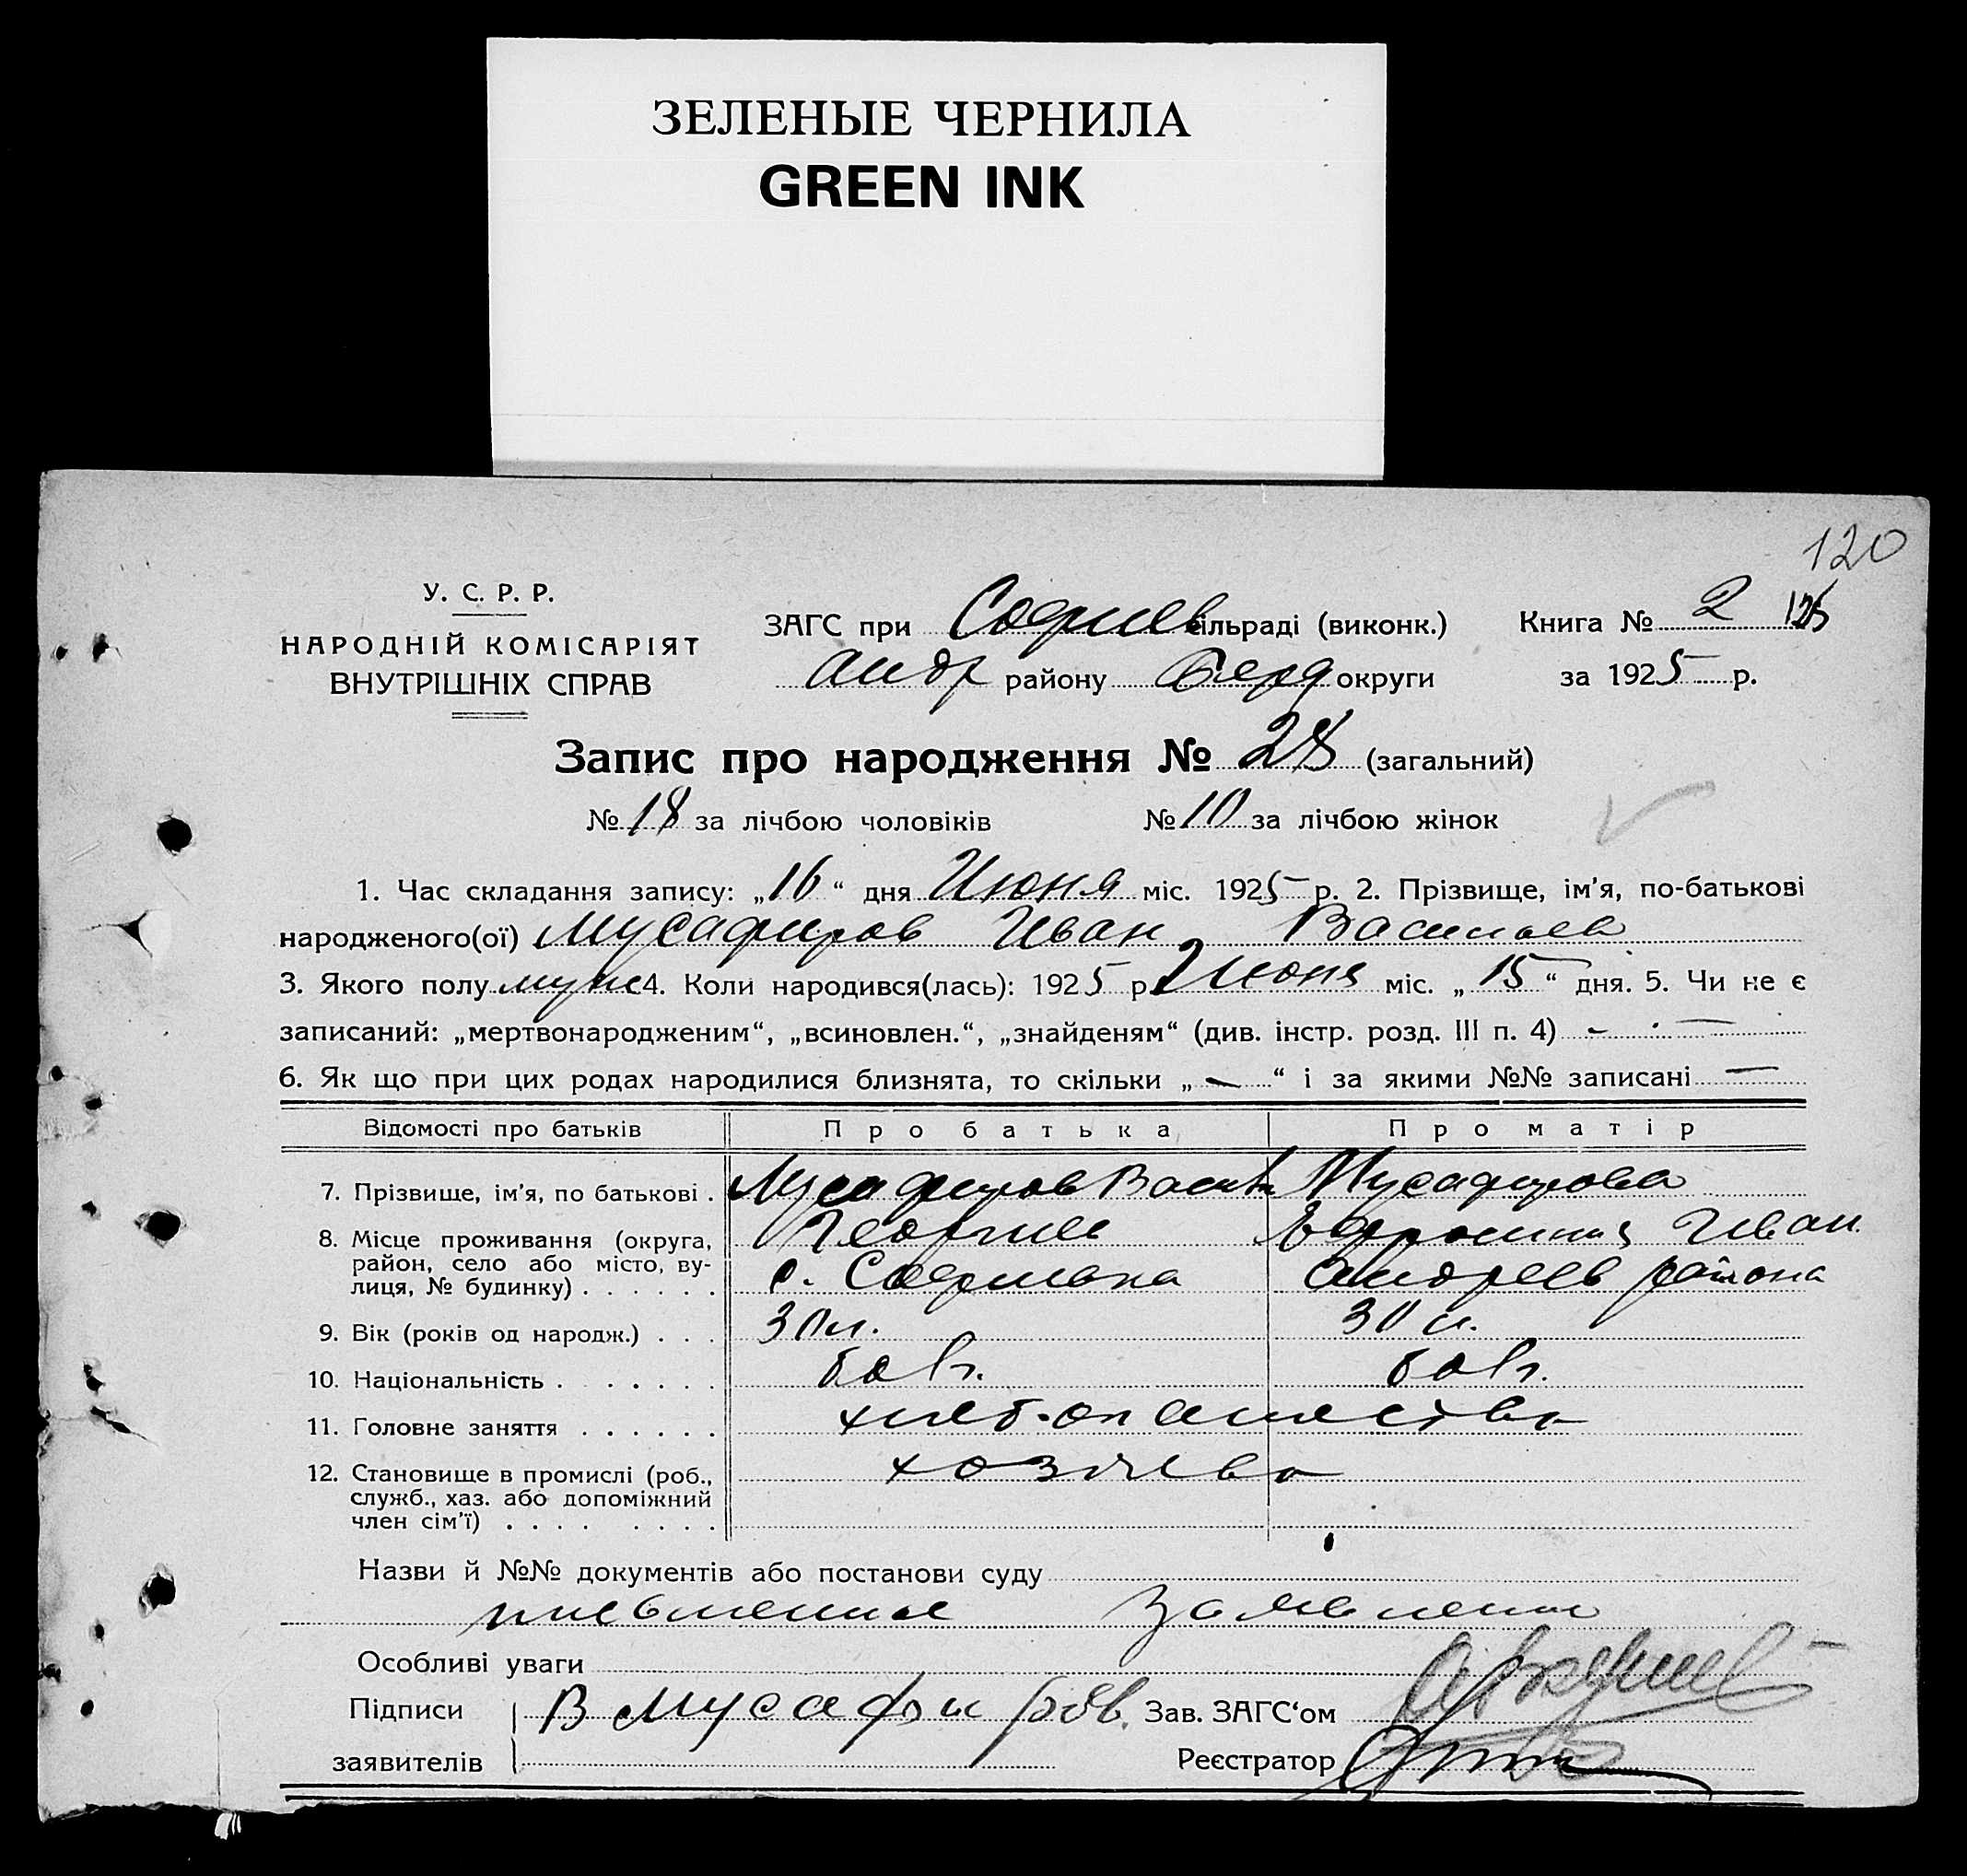 ЗЕЛЕНЫЕ ЧЕРНИЛА
GREEN INK
120
У. С. Р. Р.
НАРОДНІЙ КОМІСАРІЯТ
ВНУТРІШНІХ СПРАВ
ЗАГС при Софиев сільраді (виконк.) Книга № 2
Андр району Берд округи за 1925 р.
Запис про народження № 28 (загальний)
№ 18 за лічбою чоловіків № 10 за лічбою жінок
1. Час складання запису: „16“ дня Июня міс. 1925 р. 2. Прізвище, ім’я, по-батькові
народженого(ої) Мусафиров Иван Васильев
3. Якого полу муж 4. Коли народився(лась): 1925 р. Июня міс. „15“ дня. 5. Чи не є
записаний: „мертвонародженим“, „всиновлен.“, „знайденям“ (див. інстр. розд. III п. 4) —
6. Як що при цих родах народилися близнята, то скільки „—“ і за якими №№ записані —
Відомості про батьків Про батька Про матір
7. Прізвище, ім’я, по батькові . Мусафиров Васил Мусафирова
Георгиев Ефросиния Иван.
8. Місце проживання (округа,
район, село або місто, ву-
лиця, № будинку) . . . . . . с. Софиевка Андреев района
9. Вік (років од народж.) . . . 30 л. 30 л.
10. Національність . . . . . . болг. болг.
11. Головне заняття . . . . . . хлебопашество
12. Становище в промислі (роб.,
служб., хаз. або допоміжний
член сім’ї) . . . . . . . . хозяева
Назви й №№ документів або постанови суду
письменное заявление
Особливі уваги
Підписи В Мусафиров. Зав. ЗАГС‘ом
заявителів Реєстратор